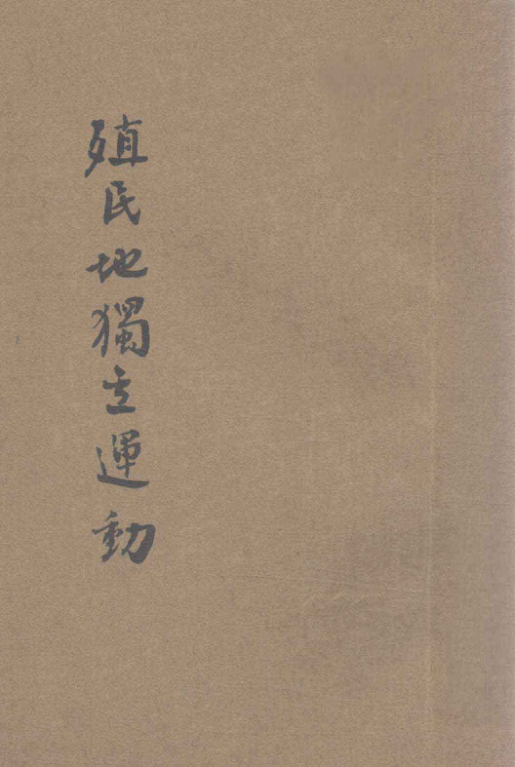 殖民地獨立運動